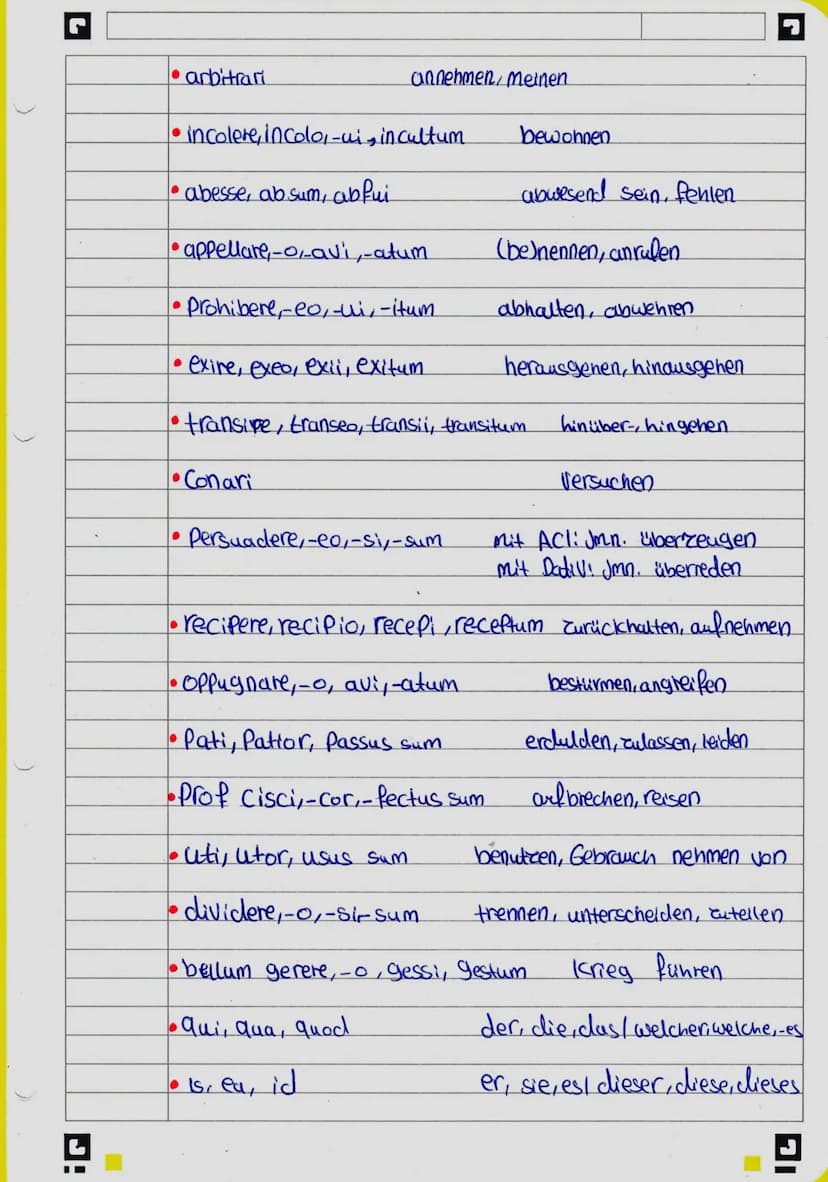 • arbitrari annehmen, meinen
• incolere, incolo, -ui, incultum bewohnen
• abesse, absum, abfui abwesend sein, fehlen
• appellare, -o, -avi, -atum (be)nennen, anrufen
• Prohibere, -eo, -ui, -itum abhalten, abwehren
• exire, exeo, exii, exitum herausgehen, hinausgehen
• transire, transeo, transii, transitum hinüber-, hingehen
• Conari versuchen
• Persuadere, -eo, -si, -sum mit ACI: Jmn. überzeugen
mit Dativ: Jmn. überreden
• recipere, recipio, recepi, receptum zurückhalten, aufnehmen
• oppugnare, -o, avi, -atum bestürmen, angreifen
• Pati, Patior, Passus sum erdulden, zulassen, leiden
• Prof cisci, -cor, -fectus sum aufbrechen, reisen
• uti, utor, usus sum benutzen, Gebrauch nehmen von
• dividere, -o, -si, -sum trennen, unterscheiden, zuteilen
• bellum gerere, -o, gessi, gestum Krieg führen
• qui, qua, quod der, die, das / welcher, welche, -es
• is, ea, id er, sie, es / dieser, diese, dieses